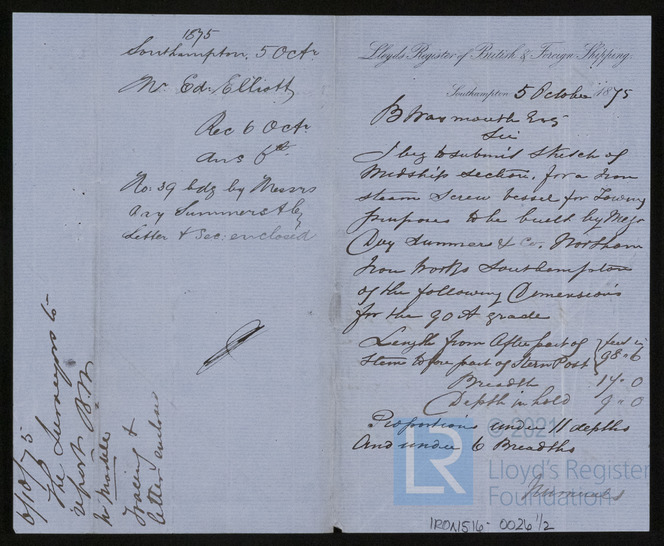 1875
Southampton, 5 Octr
Mr Ed. Elliott
Rec 6 Octr
Ans 6th
No: 39 bdg by Messrs
Day Summers & Co
Letter & Sec: enclosed
6/10/75
The Surveyors to
report B.W.
Tracing &
letter enclose
Lloyds Register of British & Foreign Shipping.
Southampton 5 October 1875
B Waymouth Esq
Sir
I beg to submit sketch of
Midship section, for a Iron
steam screw vessel for Towing
purposes to be built by Messrs
Day Summers & Co. Northam
Iron Works Southampton
of the following Dimensions
for the 90 A grade
Length from After part of feet in
Stem to fore part of Stern Post 98 " 6
Breadth 17 " 0
Depth in hold 9 " 0
Proportions under 11 depths
And under 6 Breadths
© 2021
LR
Lloyd's Register
Foundation
IRON516-0026 1/2